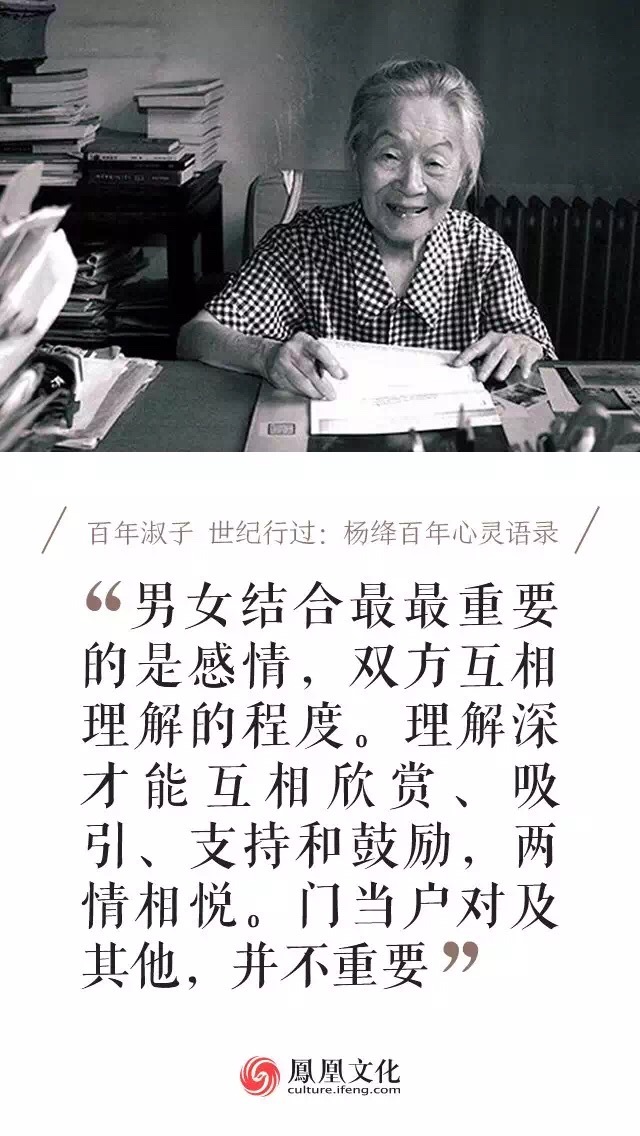 百年淑子 世纪行过：杨绛百年心灵语录
“男女结合最最重要
的是感情，双方互相
理解的程度。理解深
才能互相欣赏、吸
引、支持和鼓励，两
情相悦。门当户对及
其他，并不重要”
鳳凰文化
culture.ifeng.com